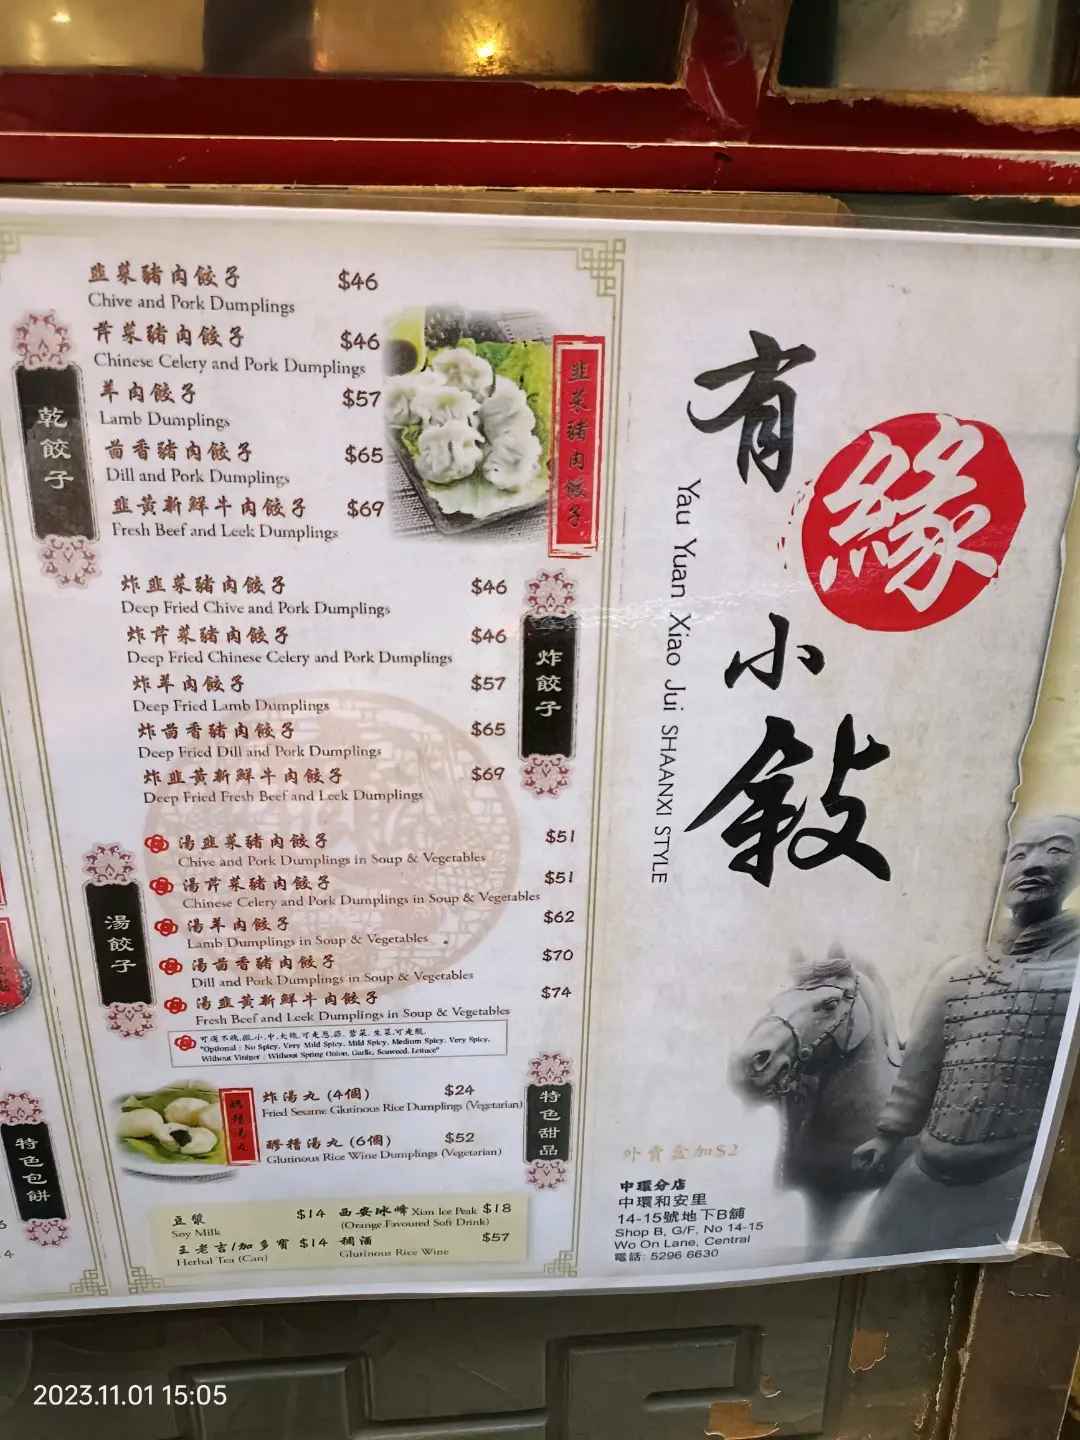 韭菜豬肉餃子 $46
Chive and Pork Dumplings
芹菜豬肉餃子 $46
Chinese Celery and Pork Dumplings
羊肉餃子 $57
Lamb Dumplings
茴香豬肉餃子 $65
Dill and Pork Dumplings
韭黃新鮮牛肉餃子 $69
Fresh Beef and Leek Dumplings
乾餃子
韭菜豬肉餃子
炸韭菜豬肉餃子 $46
Deep Fried Chive and Pork Dumplings
炸芹菜豬肉餃子 $46
Deep Fried Chinese Celery and Pork Dumplings
炸羊肉餃子 $57
Deep Fried Lamb Dumplings
炸茴香豬肉餃子 $65
Deep Fried Dill and Pork Dumplings
炸韭黃新鮮牛肉餃子 $69
Deep Fried Fresh Beef and Leek Dumplings
炸餃子
湯韭菜豬肉餃子 $51
Chive and Pork Dumplings in Soup & Vegetables
湯芹菜豬肉餃子 $51
Chinese Celery and Pork Dumplings in Soup & Vegetables
湯羊肉餃子 $62
Lamb Dumplings in Soup & Vegetables
湯茴香豬肉餃子 $70
Dill and Pork Dumplings in Soup & Vegetables
湯韭黃新鮮牛肉餃子 $74
Fresh Beef and Leek Dumplings in Soup & Vegetables
湯餃子
可選不辣,微,小,中,大辣,可走葱,蒜,紫菜,生菜,可走酸.
"Optional : No Spicy, Very Mild Spicy, Mild Spicy, Medium Spicy, Very Spicy,
Without Viniger : Without Spring Onion, Garlic, Seaweed, Lettuce"
炸湯丸 (4個) $24
Fried Sesame Glutinous Rice Dumplings (Vegetarian)
醪糟湯丸 (6個) $52
Glutinous Rice Wine Dumplings (Vegetarian)
醪糟湯丸
特色甜品
特色包餅
豆漿 $14
Soy Milk
西安冰峰 Xian Ice Peak $18
(Orange Favoured Soft Drink)
王老吉/加多寶 $14
Herbal Tea (Can)
稠酒 $57
Glutinous Rice Wine
有緣小敍
Yau Yuan Xiao Jui SHAANXI STYLE
外賣盒加$2
中環分店
中環和安里
14-15號地下B舖
Shop B, G/F, No 14-15
Wo On Lane, Central
電話: 5296 6630
2023.11.01 15:05